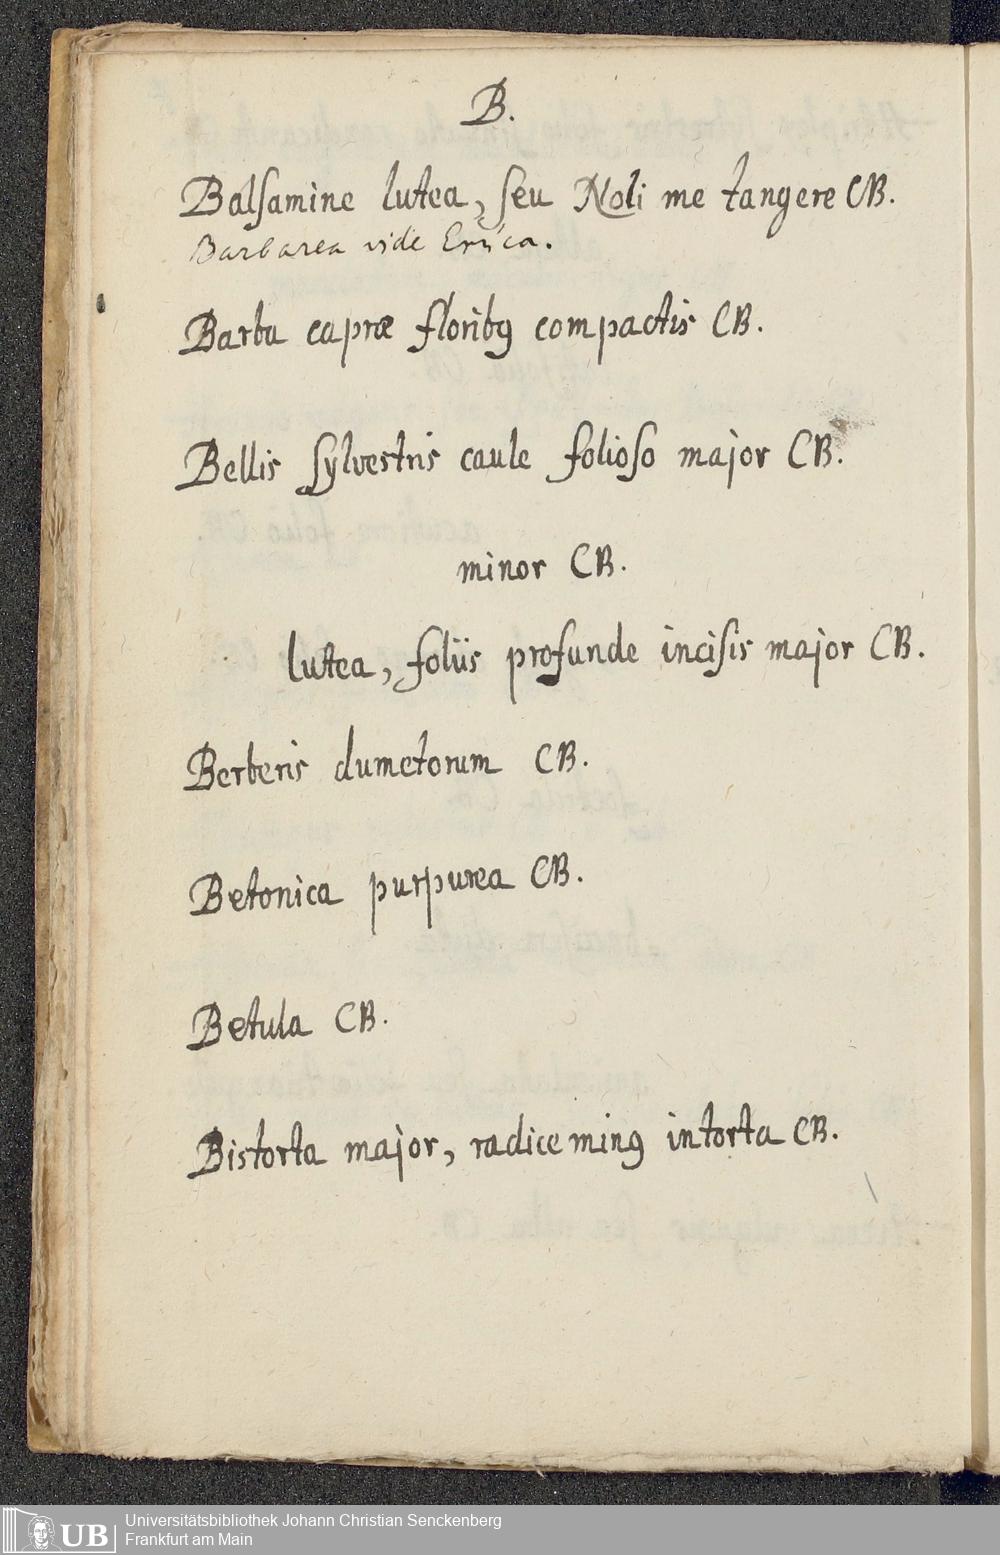 B.
Balſamine lutea, ſeu Noli me tangere CB.
Barbarea vide Eruca.
Barba capræ floribꝰ compactis CB.
Bellis ſylvestris caule folioſo major CB.
minor CB.
lutea, foliis profunde inciſis major CB.
Berberis dumetorum CB.
Betonica purpurea CB.
Betula CB.
Bistorta major, radice minꝰ intorta CB.
UB
Universitätsbibliothek Johann Christian Senckenberg
Frankfurt am Main